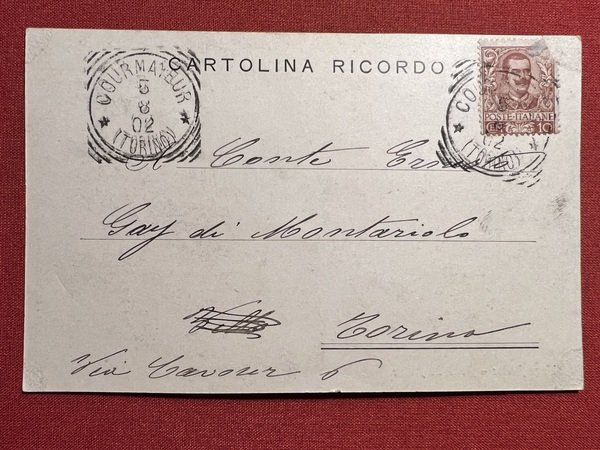 CARTOLINA RICORDO
COURMAYEUR
5
8
02
(TORINO)
POSTE ITALIANE
10
CO
02
(TORINO)
Al Conte
Gay di Montariolo
Torino
Via Cavour 6